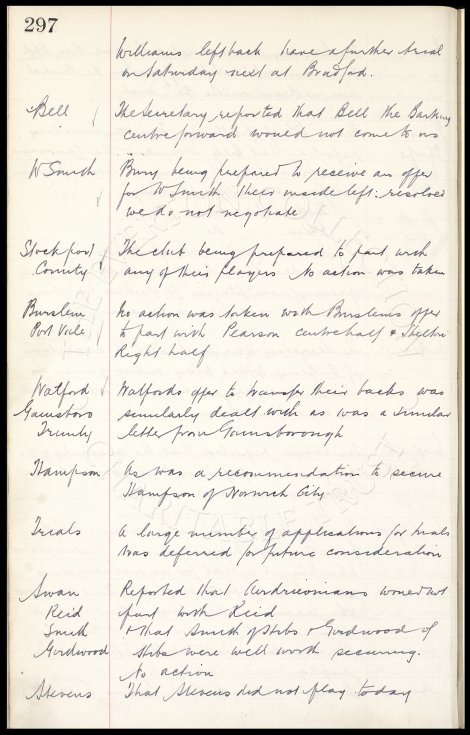 297
Williams left back have a further trial
on Saturday next at Bradford.
Bell The Secretary reported that Bell the Barking
centre forward would not come to us
W Smith Bury being prepared to receive an offer
for W Smith their inside left: resolved
we do not negotiate
Stockport The club being prepared to part with
County any of their players No action was taken
Burslem No action was taken with Burslem's offer
Port Vale to part with Pearson centre half &
Right half
Watford Watfords offer to transfer their backs was
Gainsboro similarly dealt with as was a similar
Trinity letter from Gainsborough
Hampson As was a recommendation to secure
Hampson of Norwich City
Trials A large number of applications for trials
was deferred for future consideration
Swan Reported that Airdrieonians would not
Reid part with Reid
Smith & that Smith of Hibs & Girdwood of
Girdwood Hibs were well worth securing.
No action
Stevens That Stevens did not play today